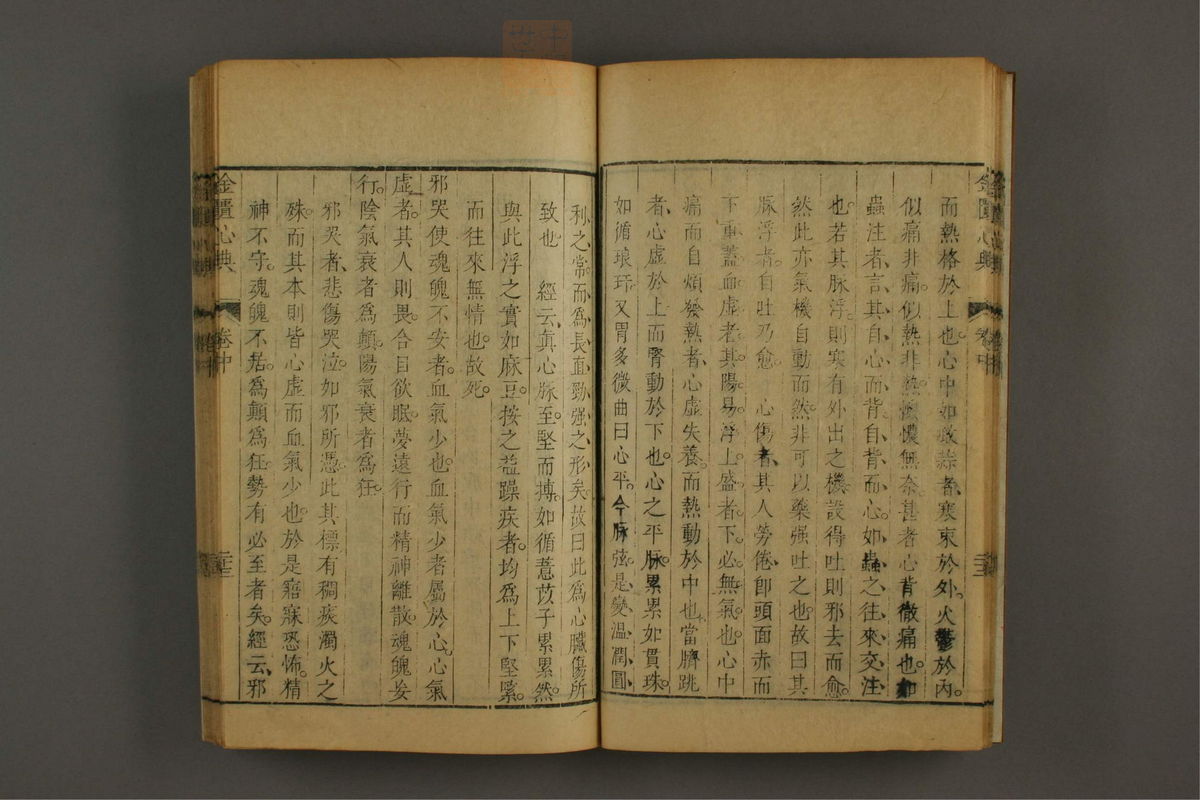 而熱格於上也。心中如噉蒜者、寒束於外、火鬱於內。
似痛非痛。似熱非熱。懊憹無奈。甚者心背徹痛也。如
蟲注者、言其自心而背、自背而心。如蟲之往來交注
也。若其脉浮。則寒有外出之機。設得吐則邪去而愈。
然此亦氣機自動而然。非可以藥强吐之也。故曰其
脉浮者。自吐乃愈。 心傷者、其人勞倦。卽頭面赤而
下重。蓋血虛者。其陽易浮。上盛者。下必無氣也。心中
痛而自煩發熱者、心虛失養。而熱動於中也。當臍跳
者、心虛於上而腎動於下也。心之平脉。累累如貫珠。
如循琅玕。又胃多微曲曰心平。今脉弦。是變溫潤圓
利之常。而爲長直勁强之形矣。故曰此爲心臟傷所
致也。 經云、眞心脉至。堅而搏。如循薏苡子累累然。
與此浮之實如麻豆。按之益躁疾者。均爲上下堅緊。
而往來無情也。故死。
邪哭使魂魄不安者。血氣少也。血氣少者屬於心。心氣
虛者。其人則畏。合目欲眠。夢遠行而精神離散。魂魄妄
行。陰氣衰者爲顛。陽氣衰者爲狂。
邪哭者、悲傷哭泣。如邪所憑。此其標有稠痰濁火之
殊。而其本則皆心虛而血氣少也。於是寤寐恐怖。精
神不守。魂魄不居。爲顛爲狂。勢有必至者矣。經云、邪
金匱心典 卷中 二十三